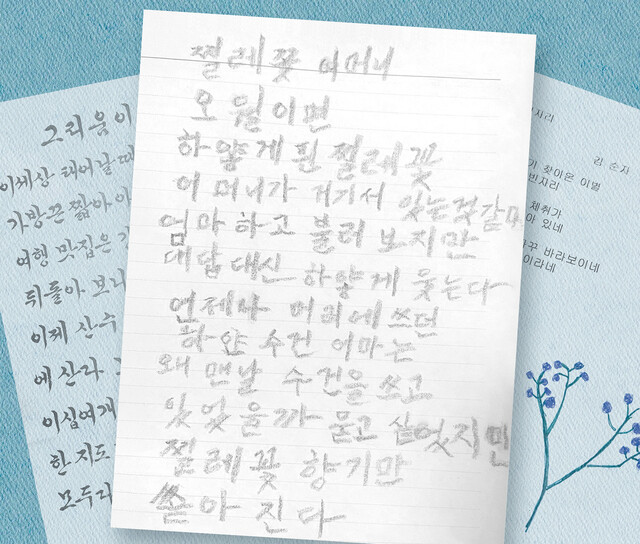 그리움이
이세상 태어날때
가방끈 짧아
여행 맛집은
뒤돌아 보니
이제 산수
에 산다
이십여개
한지도
모두다
찔레꽃 어머니
오월이면
하얗게 핀 찔레꽃
어머니가 거기서 있는것같아
엄마하고 불러 보지만
대답대신 하얗게 웃는다
언제나 머리에 쓰던
하얀 수건 어마는
왜 맨날 수건을 쓰고
있었을까 묻고 싶었지만
찔레꽃 향기만
쏟아 진다
자리
김 순자
찾아온 이별
빈자리
체취가
있네
바라보이네
이라네